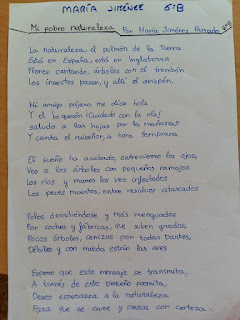 MARÍA JIMÉNEZ 6ºB
Mi pobre naturaleza Por María Jiménez Parrado 6ºB
La naturaleza, el pulmón de la Tierra
Está en España, está en Inglaterra
Flores cantando, árboles con el trombón
Los insectos pasan, y el avispón.
Mi amigo pájaro me dice hola
Y el boquerón ¡Cuidado con la ola!
Saludo a las hojas por la mañana
Y canta el ruiseñor, a hora temprana
El sueño ha acabado, entrecierro los ojos,
Veo a los árboles con pequeños ramojos
Los ríos y mares los veo infectados
Los peces muertos, entre residuos atascados
Polos derritiéndose y más menguados
Por coches y fábricas, que suben grados,
Pocos árboles, cenizas por todas partes,
Débiles y con miedo están las aves
Espero que este mensaje se transmita,
A través de este pequeño poemita,
Deseo esperanza a la naturaleza
Para que se cure y crezca con certeza.